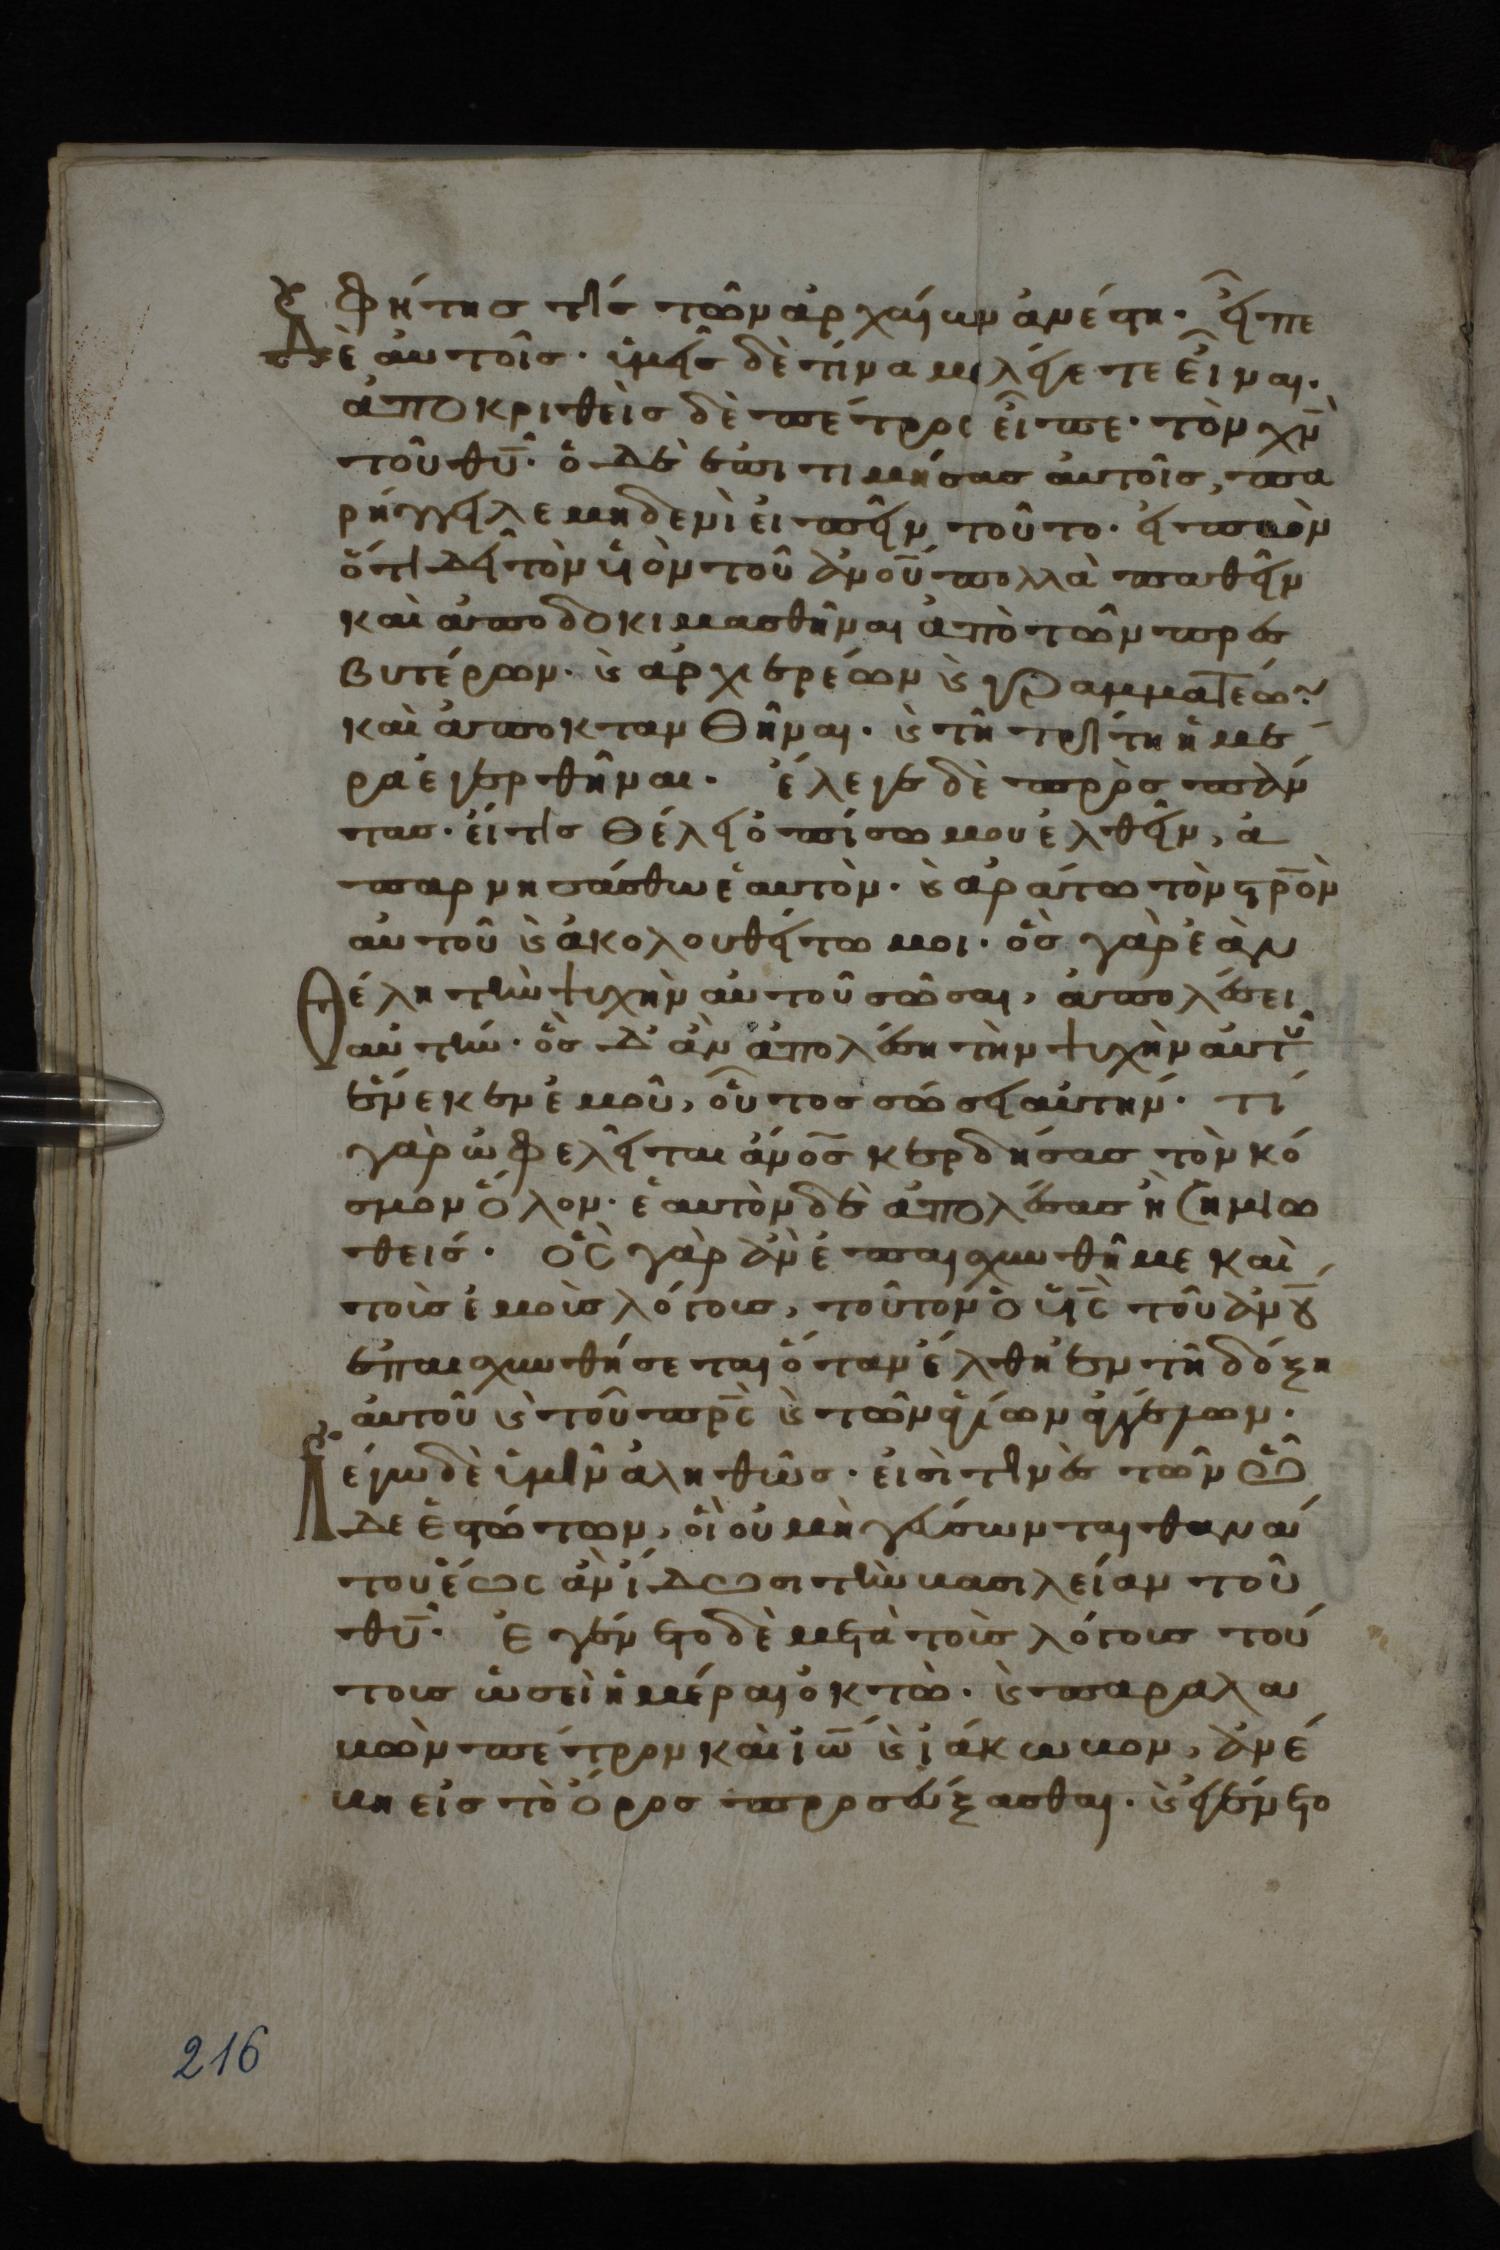 φήτης τίς τῶν ἀρχαίων ἀνέστη. εἶπε
δὲ αὐτοῖς. ὑμεῖς δὲ τίνα με λέγετε εἶναι.
ἀποκριθεὶς δὲ πέτρος εἶπε. τὸν χν̅
τοῦ θυ̅. ὁ δὲ ἐπιτιμήσας αὐτοῖς, πα
ρήγγειλε μηδενὶ εἰπεῖν τοῦτο. εἰπὼν
ὅτι δεῖ τὸν υἱὸν τοῦ ἀνου̅ πολλὰ παθεῖν
καὶ ἀποδοκιμασθῆναι ἀπὸ τῶν πρεσ
βυτέρων. καὶ ἀρχιερέων καὶ γραμματέων
καὶ ἀποκτανθῆναι. καὶ τῆ τρίτη ἡμέ
ρα ἐγερθῆναι. ἔλεγε δὲ πρὸς πάν
τας. εἴ τις θέλει ὀπίσω μου ἐλθεῖν, ἀ
παρνησάσθω ἑαυτὸν. καὶ ἀράτω τὸν στρ̅ὸν
αὐτοῦ καὶ ἀκολουθείτω μοι. ὃς γὰρ ἐὰν
θέλη τὴν ψυχὴν αὐτοῦ σῶσαι, ἀπολέσει
αὐτήν. ὃς δ' ἂν ἀπολέση τὴν ψυχὴν αὐτοῦ
ἕνεκεν ἐμοῦ, οὗτος σώσει αὐτήν. τί
γὰρ ὠφελεῖται ἄνος̅ κερδήσας τὸν κό
σμον ὅλον. ἑαυτὸν δὲ ἀπολέσας ἢ ζημιω
θείς. ὃς γὰρ ἂν ἐπαισχυνθῆ με καὶ
τοὺς ἐμοὺς λόγους, τοῦτον ὁ υἱς̅ τοῦ ἀνου̅
ἐπαισχυνθήσεται ὅταν ἔλθη ἐν τῆ δόξη
αὐτοῦ καὶ τοῦ πρς̅ καὶ τῶν ἁγίων ἀγγέλων.
λέγω δὲ ὑμῖν ἀληθῶς. εἰσὶ τινὲς τῶν ὧ
δε ἑστώτων, οἳ οὐ μὴ γεύσωνται θανά
του ἕως ἂν ἴδωσι τὴν βασιλείαν τοῦ
θυ̅. ἐγένετο δὲ μετὰ τοὺς λόγους τού
τους ὡσεὶ ἡμέραι ὀκτὼ. καὶ παραλα
βὼν πέτρον καὶ ἰω̅ καὶ ἰάκωβον, ἀνέ
βη εἰς τὸ ὄρος προσεύξασθαι. καὶ ἐγένετο
216